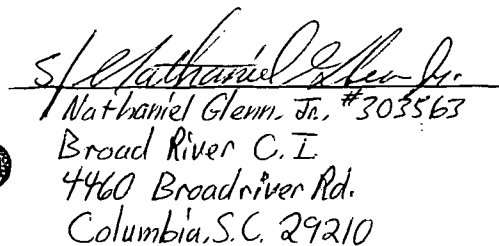 s/ Nathaniel Glenn Jr.
Nathaniel Glenn, Jr., #303563
Broad River C.I.
4460 Broadriver Rd.
Columbia, S.C. 29210